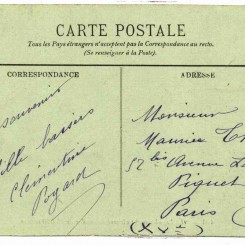 CARTE POSTALE
Tous les Pays étrangers n'acceptent pas la Correspondance au recto.
(Se renseigner à la Poste).
CORRESPONDANCE
ADRESSE
souvenir
Mille baisers
Clémentine
Monsieur
Maurice
52 bis Avenue La
Piquet
Paris
(XV